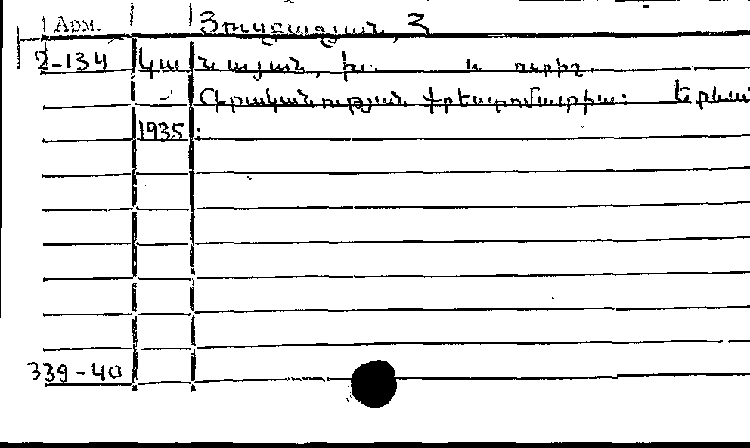 Арм.
Յուզբաշյան, Հ
2-134 Կա նայան, խ. և ուրիշ.
Գրականության քրեստոմատիա: Երևան
1935:
339-40